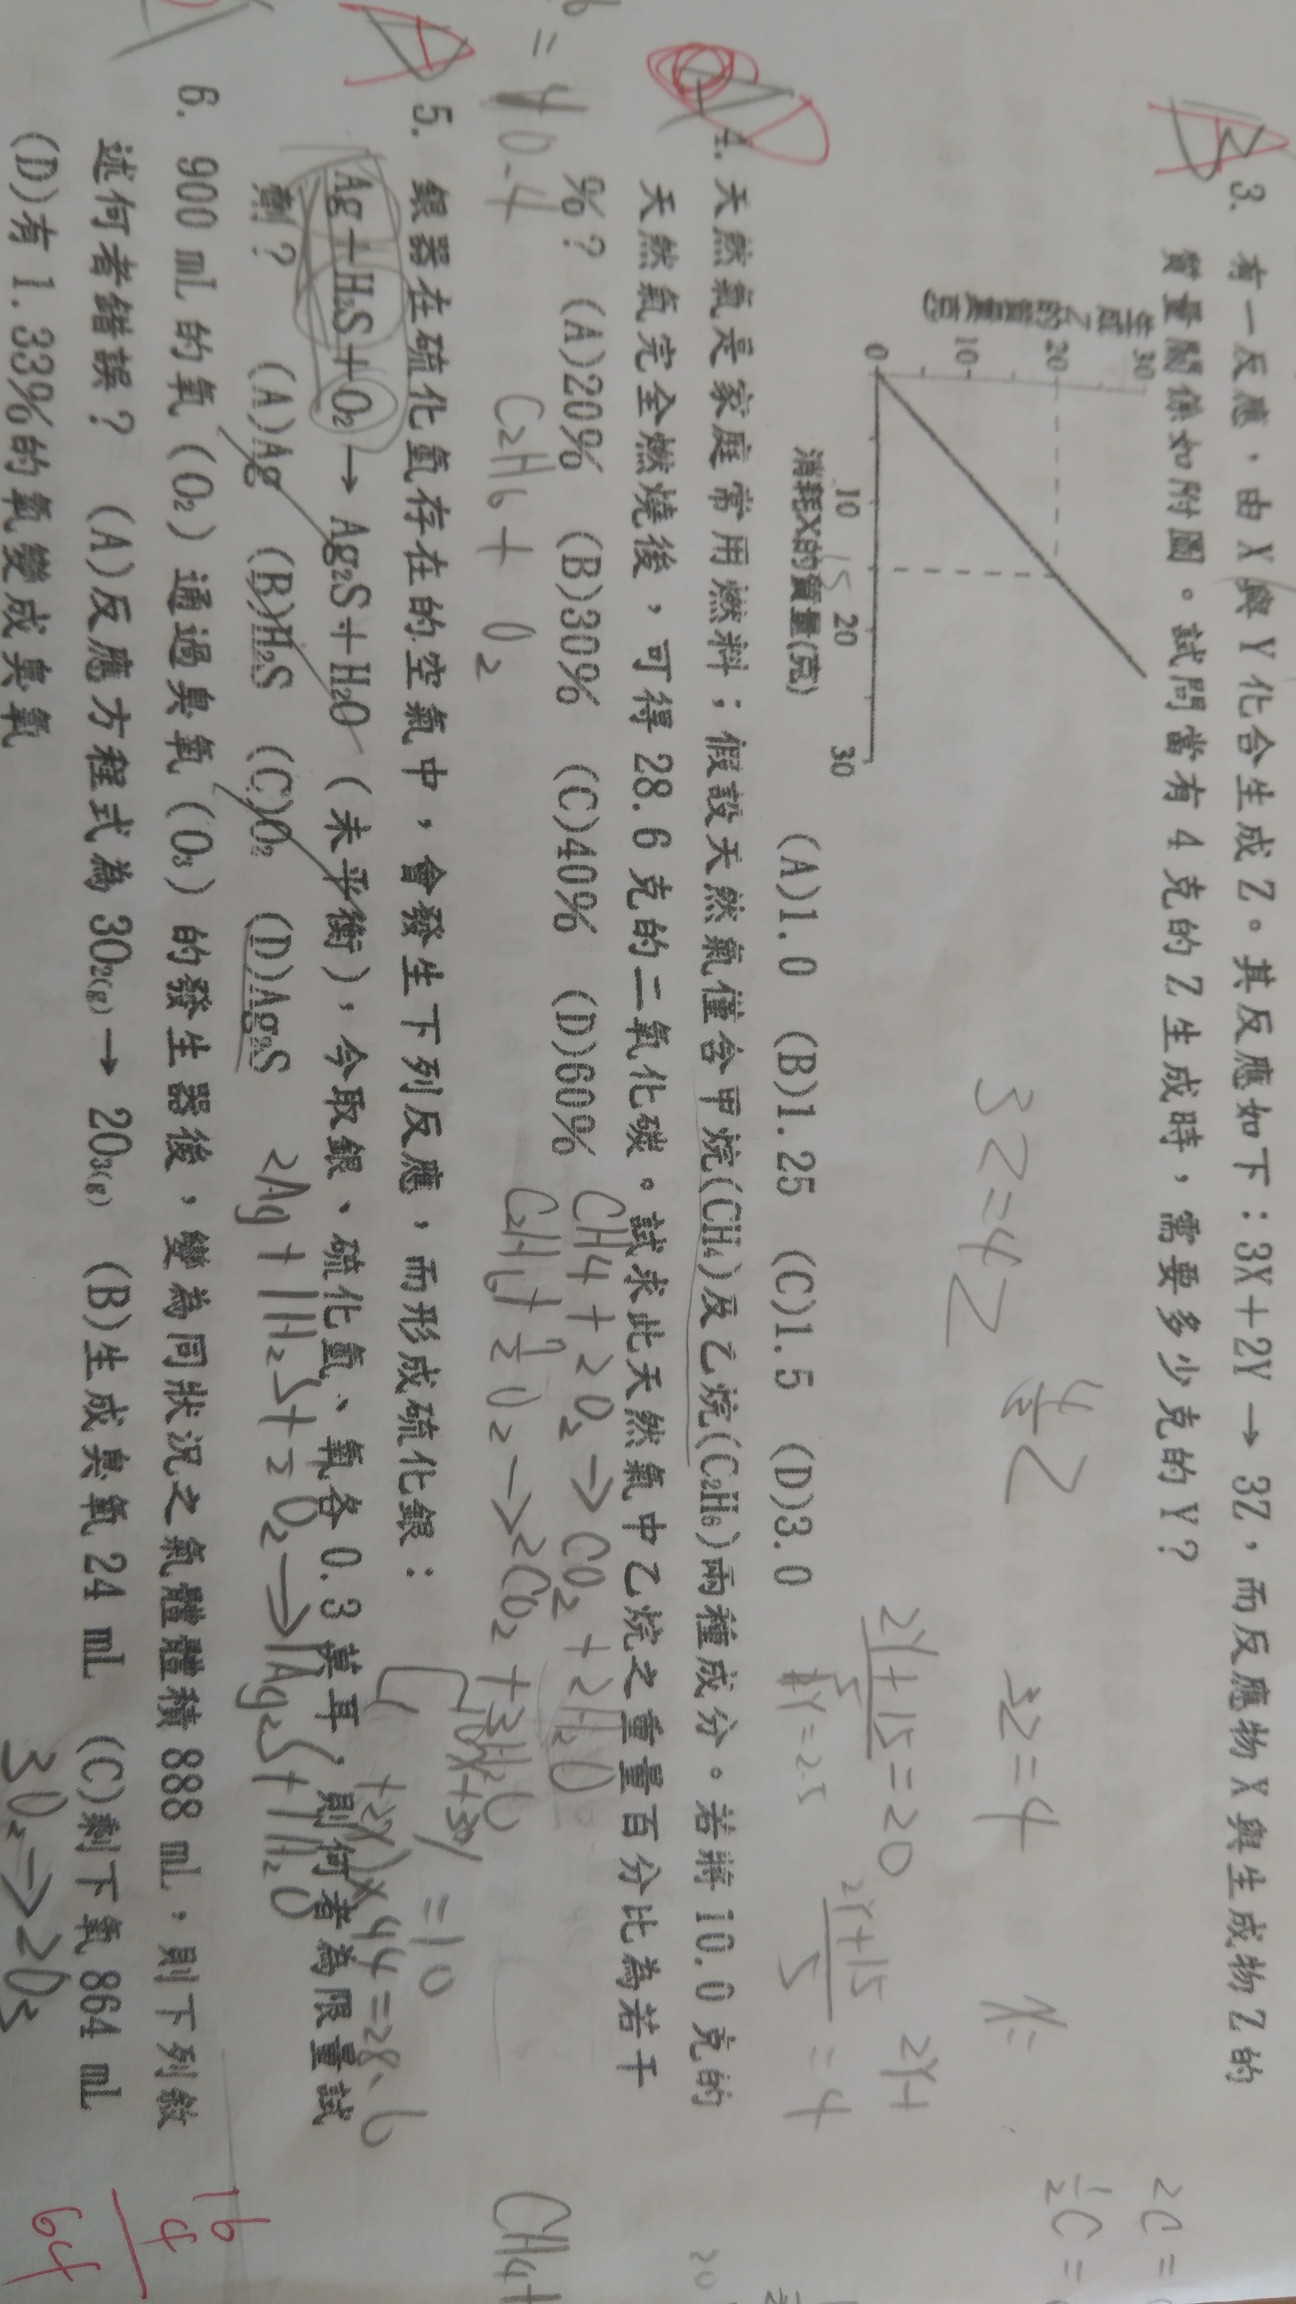 3. 有一反應,由 X 與 Y 化合生成 Z。其反應如下:3X+2Y → 3Z,而反應物 X 與生成物 Z 的
質量關係如附圖。試問當有 4 克的 Z 生成時,需要多少克的 Y?
生成Z的質量(克)
30
20
10
0
10 15 20 30
消耗X的質量(克)
(A)1.0 (B)1.25 (C)1.5 (D)3.0
3Z=4Z
2Y+15=20
2Y+15
5
=4
2Y+
2C=
4. 天然氣是家庭常用燃料;假設天然氣僅含甲烷(CH4)及乙烷(C2H6)兩種成分。若將 10.0 克的
天然氣完全燃燒後,可得 28.6 克的二氧化碳。試求此天然氣中乙烷之重量百分比為若干
%? (A)20% (B)30% (C)40% (D)60%
CH4+2O2→CO2+2H2O
C2H6+7/2O2→2CO2+3H2O
C2H6+O2
=10
×44=28.6
CH4+
5. 銀器在硫化氫存在的空氣中,會發生下列反應,而形成硫化銀:
Ag+H2S+O2 → Ag2S+H2O (未平衡),今取銀、硫化氫、氧各 0.3 莫耳,則何者為限量試
劑? (A)Ag (B)H2S (C)O2 (D)Ag2S
2Ag+1H2S+1/2O2→1Ag2S+1H2O
6. 900 mL 的氧(O2)通過臭氧(O3)的發生器後,變為同狀況之氣體體積 888 mL,則下列敘
述何者錯誤? (A)反應方程式為 3O2(g) → 2O3(g) (B)生成臭氧 24 mL (C)剩下氧 864 mL
(D)有 1.33%的氧變成臭氧
3O2→2O3
16
4
64